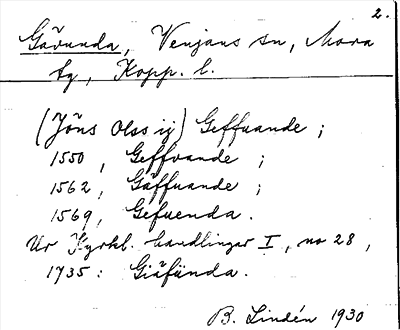 2.
Gävunda, Venjans sn, Mora
tg, Kopp. l.
(Jöns Olss ij) Geffuande ;
1550, Geffvande ;
1562, Gäffuande ;
1569, Gefuenda.
Ur Kyrkl. handlingar I, no 28,
1735: Giäfünda.
B. Lindén 1930